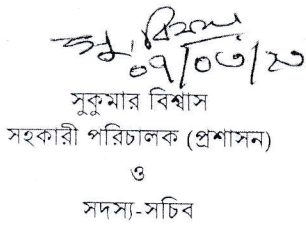 ০৭/০৩/২০
সুকুমার বিশ্বাস
সহকারী পরিচালক (প্রশাসন)
ও
সদস্য-সচিব